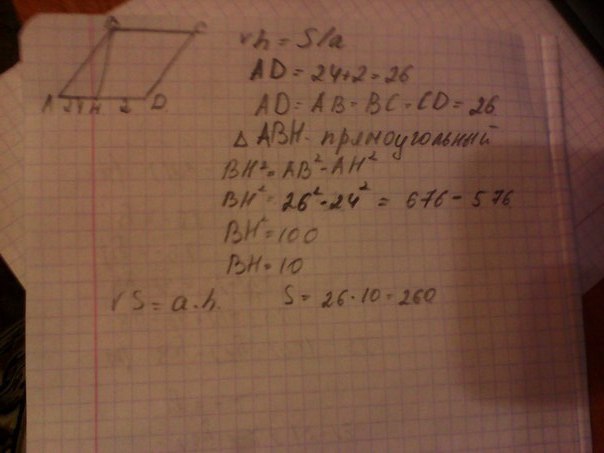 B C
A 24 H 2 D
vh = S/a
AD = 24+2 = 26
AD = AB = BC = CD = 26
△ ABH - прямоугольный
BH² = AB² - AH²
BH² = 26² - 24² = 676 - 576
BH² = 100
BH = 10
vS = a·h. S = 26·10 = 260